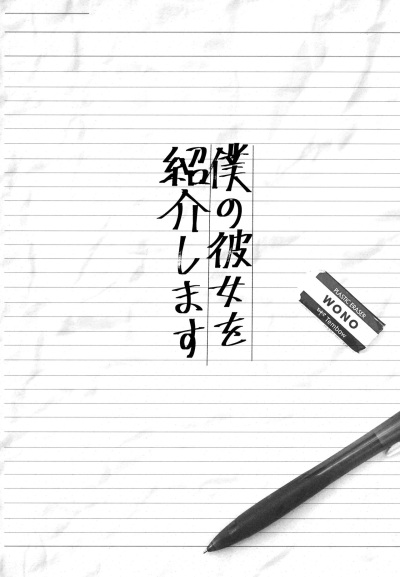 僕の彼女を
紹介します
PLASTIC ERASER
WONO
type Tombow